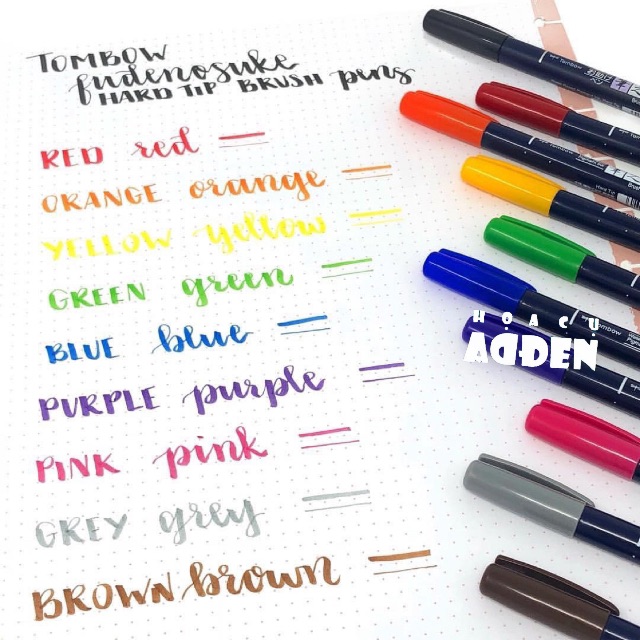 TOMBOW
fudenosuke
HARD TIP BRUSH pens
RED red
ORANGE orange
YELLOW yellow
GREEN green
BLUE blue
PURPLE purple
PINK pink
GREY grey
BROWN brown
HỌA CỤ
ADDEN